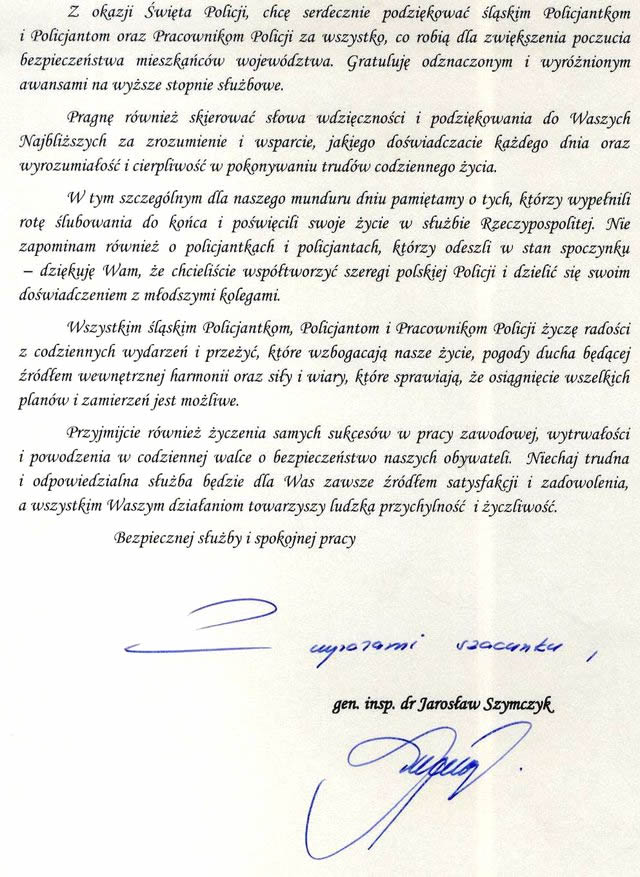 Z okazji Święta Policji, chcę serdecznie podziękować śląskim Policjantkom
i Policjantom oraz Pracownikom Policji za wszystko, co robią dla zwiększenia poczucia
bezpieczeństwa mieszkańców województwa. Gratuluję odznaczonym i wyróżnionym
awansami na wyższe stopnie służbowe.
Pragnę również skierować słowa wdzięczności i podziękowania do Waszych
Najbliższych za zrozumienie i wsparcie, jakiego doświadczacie każdego dnia oraz
wyrozumiałość i cierpliwość w pokonywaniu trudów codziennego życia.
W tym szczególnym dla naszego munduru dniu pamiętamy o tych, którzy wypełnili
rotę ślubowania do końca i poświęcili swoje życie w służbie Rzeczypospolitej. Nie
zapominam również o policjantkach i policjantach, którzy odeszli w stan spoczynku
– dziękuję Wam, że chcieliście współtworzyć szeregi polskiej Policji i dzielić się swoim
doświadczeniem z młodszymi kolegami.
Wszystkim śląskim Policjantkom, Policjantom i Pracownikom Policji życzę radości
z codziennych wydarzeń i przeżyć, które wzbogacają nasze życie, pogody ducha będącej
źródłem wewnętrznej harmonii oraz siły i wiary, które sprawiają, że osiągnięcie wszelkich
planów i zamierzeń jest możliwe.
Przyjmijcie również życzenia samych sukcesów w pracy zawodowej, wytrwałości
i powodzenia w codziennej walce o bezpieczeństwo naszych obywateli. Niechaj trudna
i odpowiedzialna służba będzie dla Was zawsze źródłem satysfakcji i zadowolenia,
a wszystkim Waszym działaniom towarzyszy ludzka przychylność i życzliwość.
Bezpiecznej służby i spokojnej pracy
Z wyrazami szacunku,
gen. insp. dr Jarosław Szymczyk